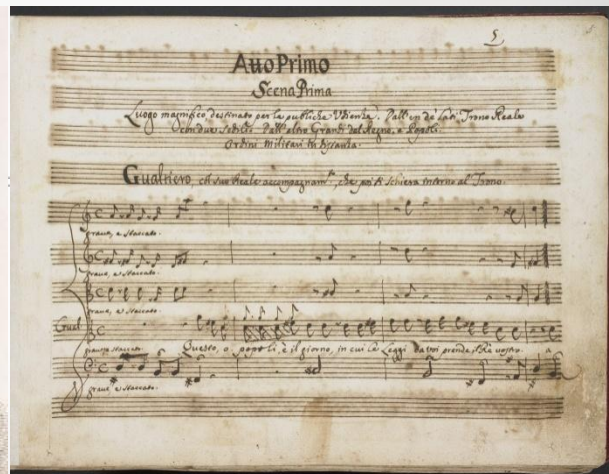 5
Atto Primo
Scena Prima
Luogo magnifico destinato per le publiche Udienze. Dall'un de' lati Trono Reale
con due Sedili. Dall'altro Grandi del Regno, e Popoli.
Ordini militari in
Gualtiero, col suo Reale accompagnam.to, che poi si schiera intorno al Trono.
grave, e staccato.
grave, e staccato.
grave, e staccato.
Gual
grave, e staccato.
Questo, o popoli, è il giorno, in cui le Leggi da voi prende il Rè vostro. a
grave e staccato.